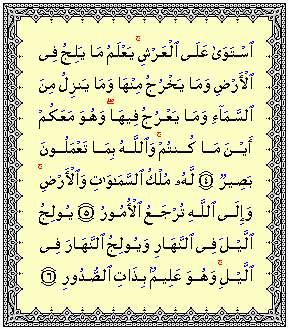 ٱسۡتَوَىٰ عَلَى ٱلۡعَرۡشِۚ يَعۡلَمُ مَا يَلِجُ فِى
ٱلۡأَرۡضِ وَمَا يَخۡرُجُ مِنۡهَا وَمَا يَنزِلُ مِنَ
ٱلسَّمَآءِ وَمَا يَعۡرُجُ فِيهَاۖ وَهُوَ مَعَكُمۡ
أَيۡنَ مَا كُنتُمۡۚ وَٱللَّهُ بِمَا تَعۡمَلُونَ
بَصِيرٌ ۝٤ لَّهُۥ مُلۡكُ ٱلسَّمَٰوَٰتِ وَٱلۡأَرۡضِۚ
وَإِلَى ٱللَّهِ تُرۡجَعُ ٱلۡأُمُورُ ۝٥ يُولِجُ
ٱلَّيۡلَ فِى ٱلنَّهَارِ وَيُولِجُ ٱلنَّهَارَ فِى
ٱلَّيۡلِۚ وَهُوَ عَلِيمٌۢ بِذَاتِ ٱلصُّدُورِ ۝٦